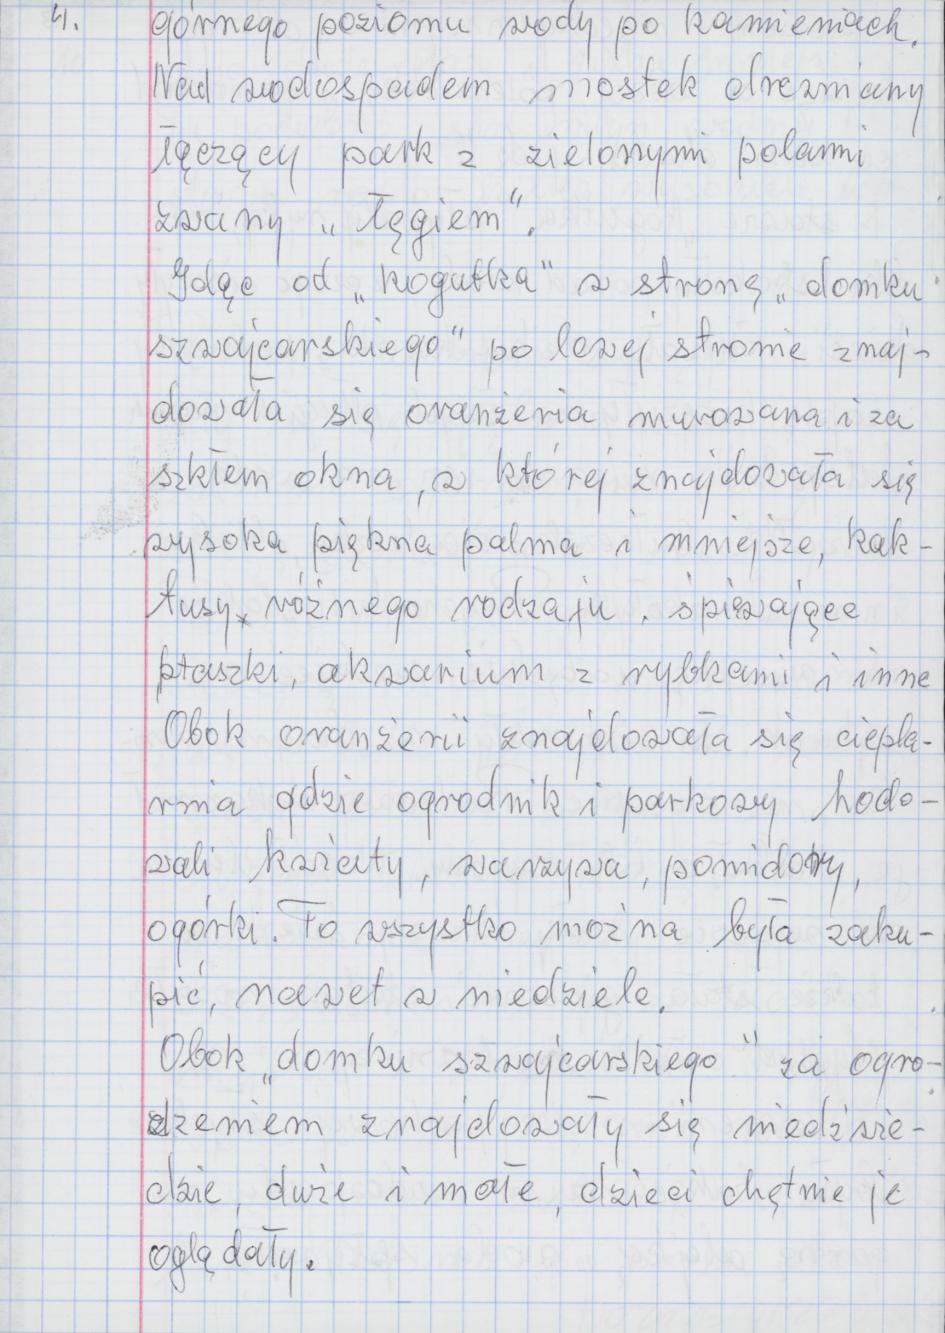 4. górnego poziomu wody po kamieniach.
Nad wodospadem mostek drewniany
łączący park z zielonymi polami
zwany „łęgiem”.
Idąc od „Kogutka” w stronę „domku
szwajcarskiego” po lewej stronie znaj-
dowała się oranżeria murowana i za
szkłem okna, w której znajdowała się
wysoka piękna palma i mniejsze, kak-
tusy, różnego rodzaju. śpiewające
ptaszki, akwarium z rybkami i inne
Obok oranżerii znajdowała się ciepla-
rnia gdzie ogrodnik i parkowy hodo-
wali kwiaty, warzywa, pomidory,
ogórki. To wszystko można była zaku-
pić, nawet w niedziele.
Obok „domku szwajcarskiego” za ogro-
dzeniem znajdowały się niedźwie-
dzie, duże i małe, dzieci chętnie je
oglądały.